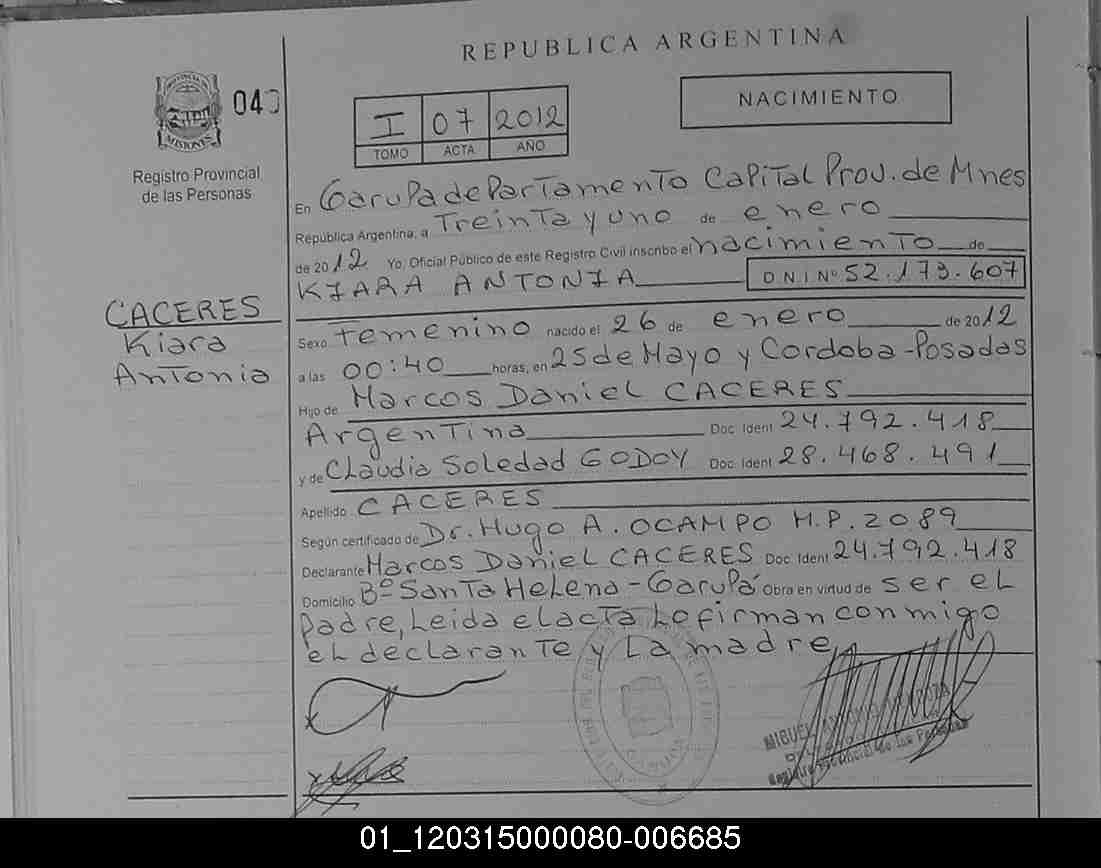 REPUBLICA ARGENTINA
PROVINCIA DE
MISIONES
040
Registro Provincial
de las Personas
I 07 2012
TOMO ACTA AÑO
NACIMIENTO
En Garupa departamento Capital Prov. de Mnes
República Argentina, a Treinta y uno de enero
de 2012 Yo, Oficial Público de este Registro Civil inscribo el nacimiento de
KIARA ANTONIA DNI Nº 52.173.607
CACERES
Kiara
Antonia
Sexo Femenino nacido el 26 de enero de 2012
a las 00:40 horas, en 25 de Mayo y Cordoba-Posadas
Hijo de Marcos Daniel CACERES
Argentina Doc Ident 24.792.418
y de Claudia Soledad GODOY Doc Ident 28.468.491
Apellido CACERES
Según certificado de Dr. Hugo A. OCAMPO M.P. 2089
Declarante Marcos Daniel CACERES Doc Ident 24.792.418
Domicilio Bº Santa Helena - Garupá Obra en virtud de ser el
padre, Leida el acta Lo firman conmigo
el declarante y La madre
MIGUEL ANTONIO
Registro Provincial de las Personas
01_120315000080-006685